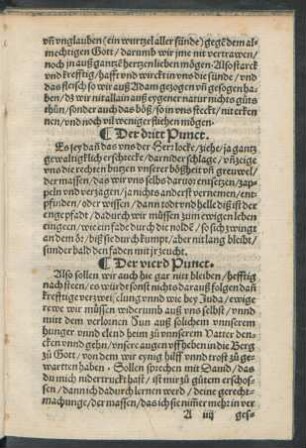 vñ vnglauben (ein wurtzel aller sünde) gegē dem al-
mechtigen Gott / darumb wir jme nit vertrawen /
noch jn auß gantzē hertzen lieben mögen. Also starck
vnd krefftig / hafft vnd wirckt in vns die sünde / vnd
das fleisch so wir auß Adam gezogen vñ gesogen ha-
ben / dz wir nit allain auß eygener natur nichts gůts
thůn / sonder auch das böß / so in vns steckt / nit erken
nen / vnd noch vil weniger fliehen mögen.
¶ Der dritt Punct.
Es sey dañ das vns der Herr locke / ziehe / ja gantz
gewaltigklich erschrecke / darnider schlage / vñ zeige
vns die rechten butzen vnserer bößheit vñ greuwel /
der massen / das wir vns selbs daruor entsetzen / zap-
peln vnd verzagen / ja nichts anderst vernemen / ent-
pfinden / oder wissen / dann todt vnd helle diß ist der
eng pfade / dadurch wir müssen zum ewigen leben
eingeen / wie ein fade durch die nolde / so sich zwingt
an dem ör / biß sie durch kumpt / aber nit lang bleibt /
sunder bald den faden mit jr zeucht.
¶ Der vierd Punct.
Also sollen wir auch hie gar nitt bleiben / hefftig
nach steen / es würde sonst nichts darauß folgen dañ
krefftige verzweiflung vnnd wie bey Juda / ewige
rewe wir müssen widerumb auß vns selbst / vnnd
mitt dem verlornen Sun auß solichem vnnserem
hunger vnnd elend heim zů vnnserem Vatter den-
cken vnnd gehn / vnsere augen vff heben in die Berg
zů Gott / von dem wir eynig hilff vnnd trost zů ge-
wartten haben. Sollen sprechen mit Dauid / das
du mich nidertruckt hast / ist mir zů gůtem erschos-
sen / dann ich dadurch lernen werd / deine gerecht-
machunge / der massen / das ich sie nim̃er meh in ver
A iiij ges-